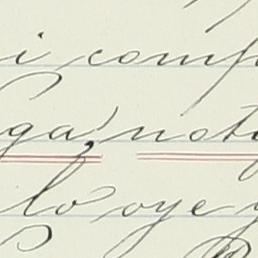 i comp
ga, not
lo oye y